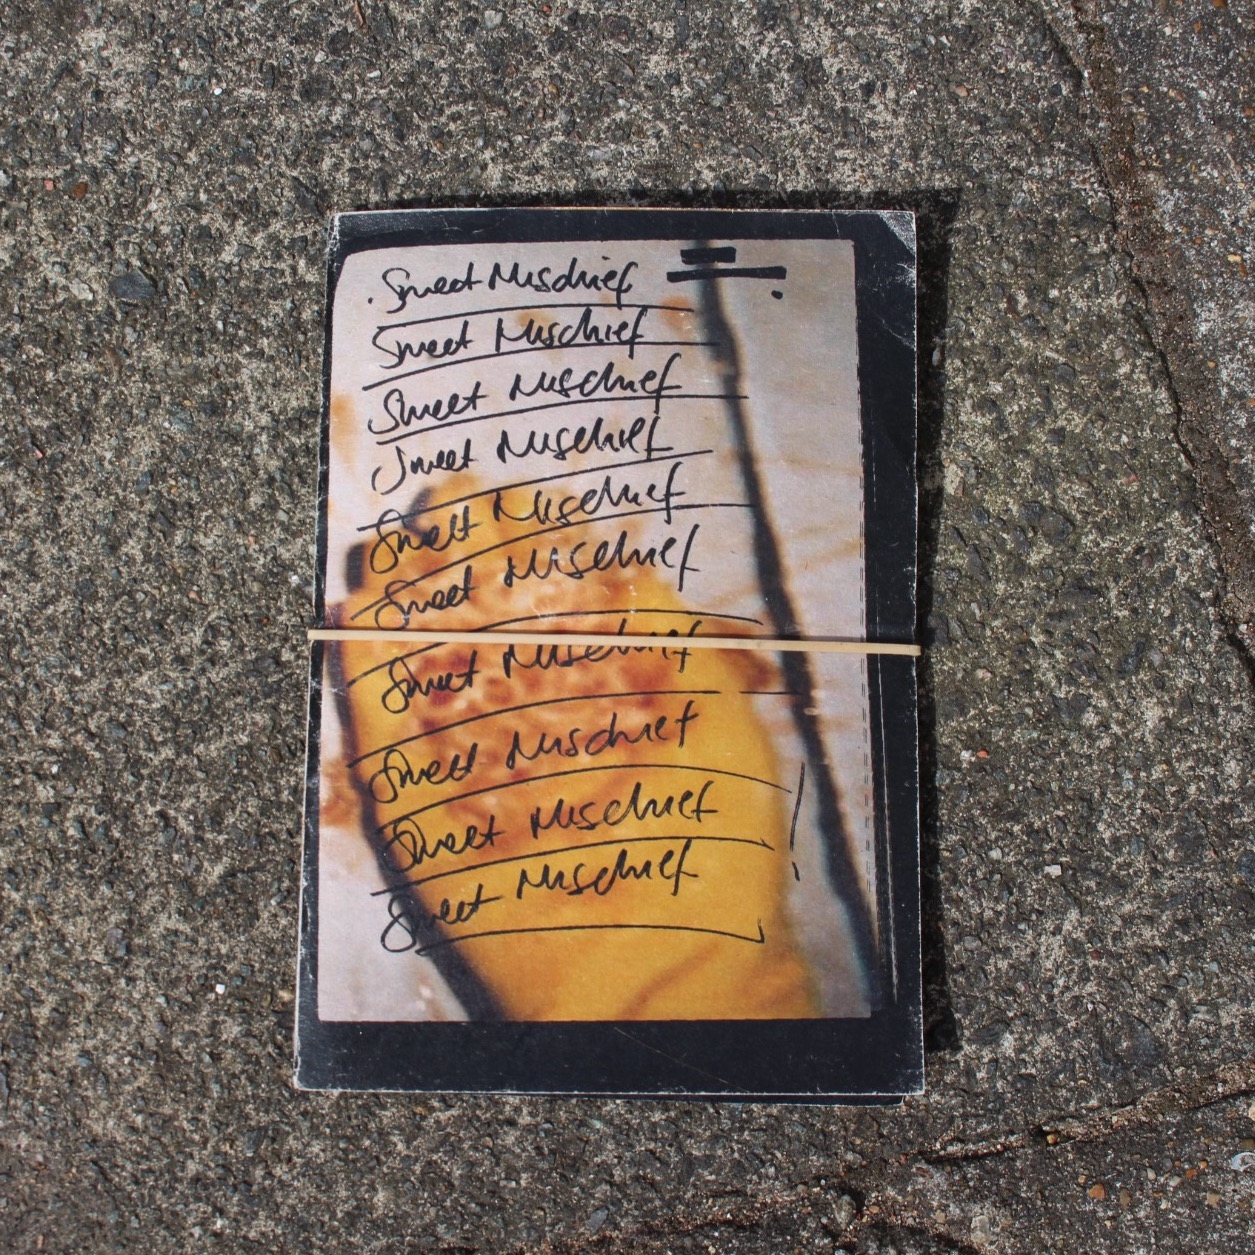 Sweet Mischief
Sweet Mischief
Sweet Mischief
Sweet Mischief
Sweet Mischief
Sweet Mischief
Sweet Mischief
Sweet Mischief
Sweet Mischief
Sweet Mischief